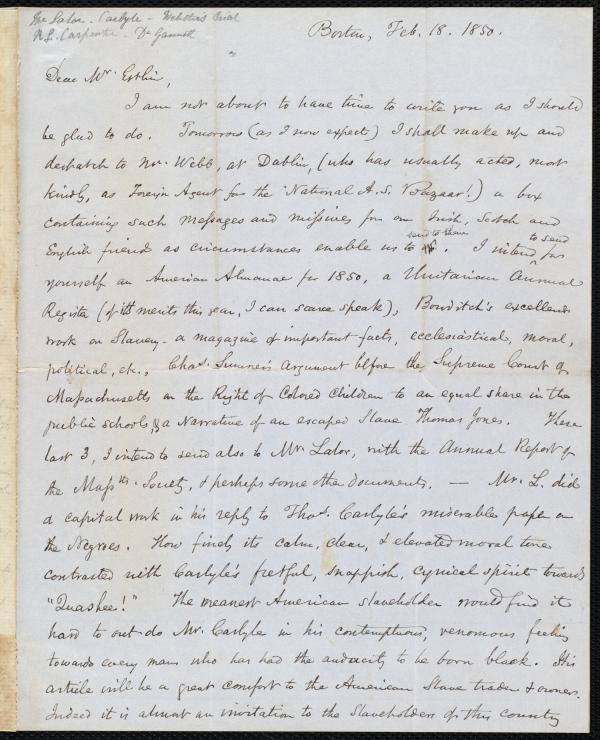 Mr Lalor. Carlyle - Webster's trial
R. L. Carpenter - Dr Gannett
Boston, Feb. 18. 1850.
Dear Mr. Estlin,
I am not about to have time to write you as I should
be glad to do. Tomorrow (as I now expect) I shall make up and
despatch to Mr. Webb, at Dublin, (who has usually acted, most
kindly, as Foreign Agent for the 'National A. S. Bazaar'.) a box
containing such messages and missives for our Irish, Scotch and
send to them
English friends as circumstances enable us to . I intend to send for
yourself an American Almanac for 1850, a Unitarian Annual
Register (of its merits this year, I can scarce speak), Bowditch's excellent
work on Slavery - a magazine of important facts, ecclesiastical, moral,
political, etc., Chas. Sumner's Argument before the Supreme Court of
Massachusetts on the Right of Colored Children to an equal share in the
public schools, & a Narrative of an escaped Slave Thomas Jones. These
last 3, I intend to send also to Mr. Lalor, with the Annual Report of
the Massts. Society, & perhaps some other documents. — Mr. L. did
a capital work in his reply to Thos. Carlyle's miserable paper on
the Negroes. How finely its calm, clear, & elevated moral tone
contrasted with Carlyle's fretful, snappish, cynical spirit towards
"Quashee!" The meanest American slaveholder would find it
hard to out-do Mr. Carlyle in his contemptuous, venomous feeling
towards every man who has had the audacity to be born black. His
article will be a great comfort to the American Slave traders & owners.
Indeed it is almost an invitation to the Slaveholders of this country